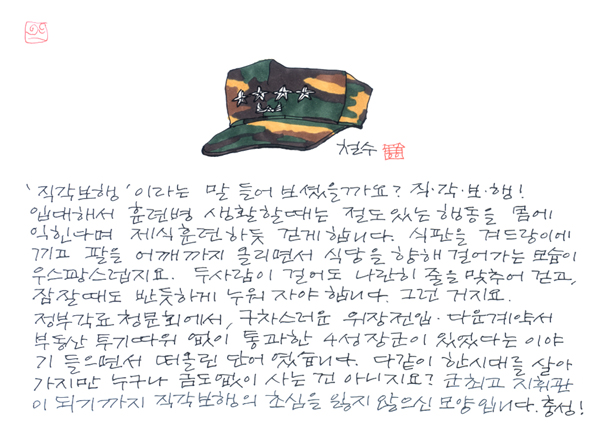 철수
'직각보행'이라는 말 들어 보셨을까요? 직·각·보·행!
입대해서 훈련병 생활할때는 절도있는 행동을 몸에
익힌다며 제식훈련하듯 걷게합니다. 식판을 겨드랑이에
끼고 팔을 어깨까지 올리면서 식당을 향해 걸어가는 모습이
우스꽝스럽지요. 두사람이 걸어도 나란히 줄을 맞추어 걷고,
잠잘때도 반듯하게 누워 자야 합니다. 그런 거지요.
정부각료 청문회에서, 구차스러운 위장전입·다운계약서
부동산 투기따위 없이 통과한 4성장군이 있었다는 이야
기 들으면서 떠올린 단어였습니다. 다같이 한시대를 살아
가지만 누구나 금도없이 사는 건 아니지요? 군최고 지휘관
이 되기까지 직각보행의 초심을 잃지 않으신 모양입니다. 충성!